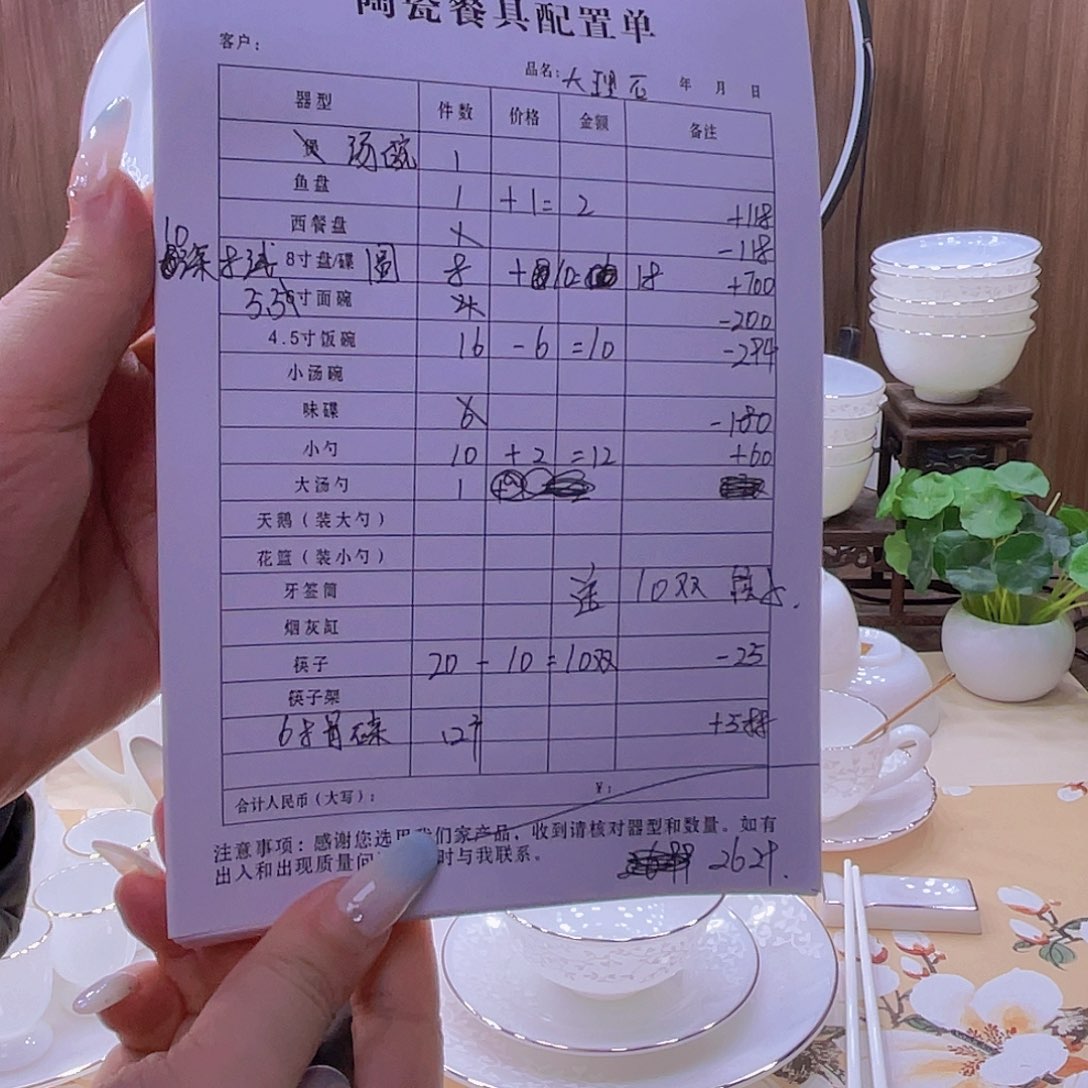 陶瓷餐具配置单
客户：
品名：大理石 年 月 日
器型 件数 价格 金额 备注
汤碗 1
鱼盘 1 +1= 2 +118
西餐盘 -118
8寸盘/碟 圆 8 + 10= 18 +700
5.5寸面碗 -200
4.5寸饭碗 16 -6 =10 -294
小汤碗
味碟 6 -180
小勺 10 +2 =12 +60
大汤勺 1
天鹅（装大勺）
花篮（装小勺）
牙签筒 送 10双
烟灰缸
筷子 20 - 10 = 10双 -25
筷子架
6寸骨碟 12个
合计人民币（大写）： ¥：
注意事项：感谢您选用我们家产品，收到请核对器型和数量。如有
出入和出现质量问 时与我联系。